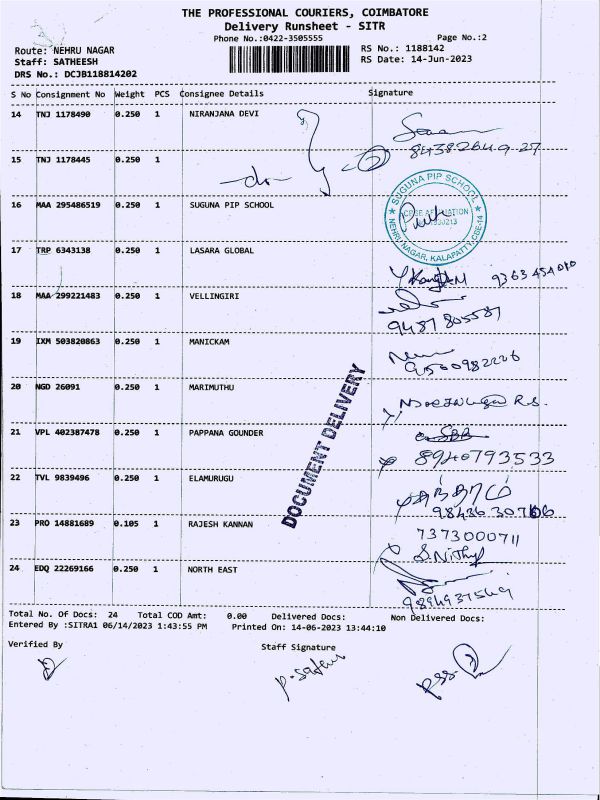 THE PROFESSIONAL COURIERS, COIMBATORE
Delivery Runsheet - SITR
Phone No.:0422-3505555
Page No.:2
Route: NEHRU NAGAR
RS No.: 1188142
Staff: SATHEESH
RS Date: 14-Jun-2023
DRS No.: DCJB118814202
S No Consignment No Weight PCS Consignee Details Signature
14 TNJ 1178490 0.250 1 NIRANJANA DEVI
15 TNJ 1178445 0.250 1
16 MAA 295486519 0.250 1 SUGUNA PIP SCHOOL
SUGUNA PIP SCHOOL
NEHRU NAGAR, KALAPATTY, CBE-14
17 TRP 6343138 0.250 1 LASARA GLOBAL
9363454010
18 MAA 299221483 0.250 1 VELLINGIRI
9487805587
19 IXM 503820863 0.250 1 MANICKAM
9500982226
20 NGD 26091 0.250 1 MARIMUTHU
DOCUMENT DELIVERY
21 VPL 402387478 0.250 1 PAPPANA GOUNDER
8940793533
22 TVL 9839496 0.250 1 ELAMURUGU
23 PRO 14881689 0.105 1 RAJESH KANNAN
7373000711
S.Nithya
24 EDQ 22269166 0.250 1 NORTH EAST
9894937549
Total No. Of Docs: 24 Total COD Amt: 0.00 Delivered Docs: Non Delivered Docs:
Entered By :SITRA1 06/14/2023 1:43:55 PM Printed On: 14-06-2023 13:44:10
Verified By Staff Signature